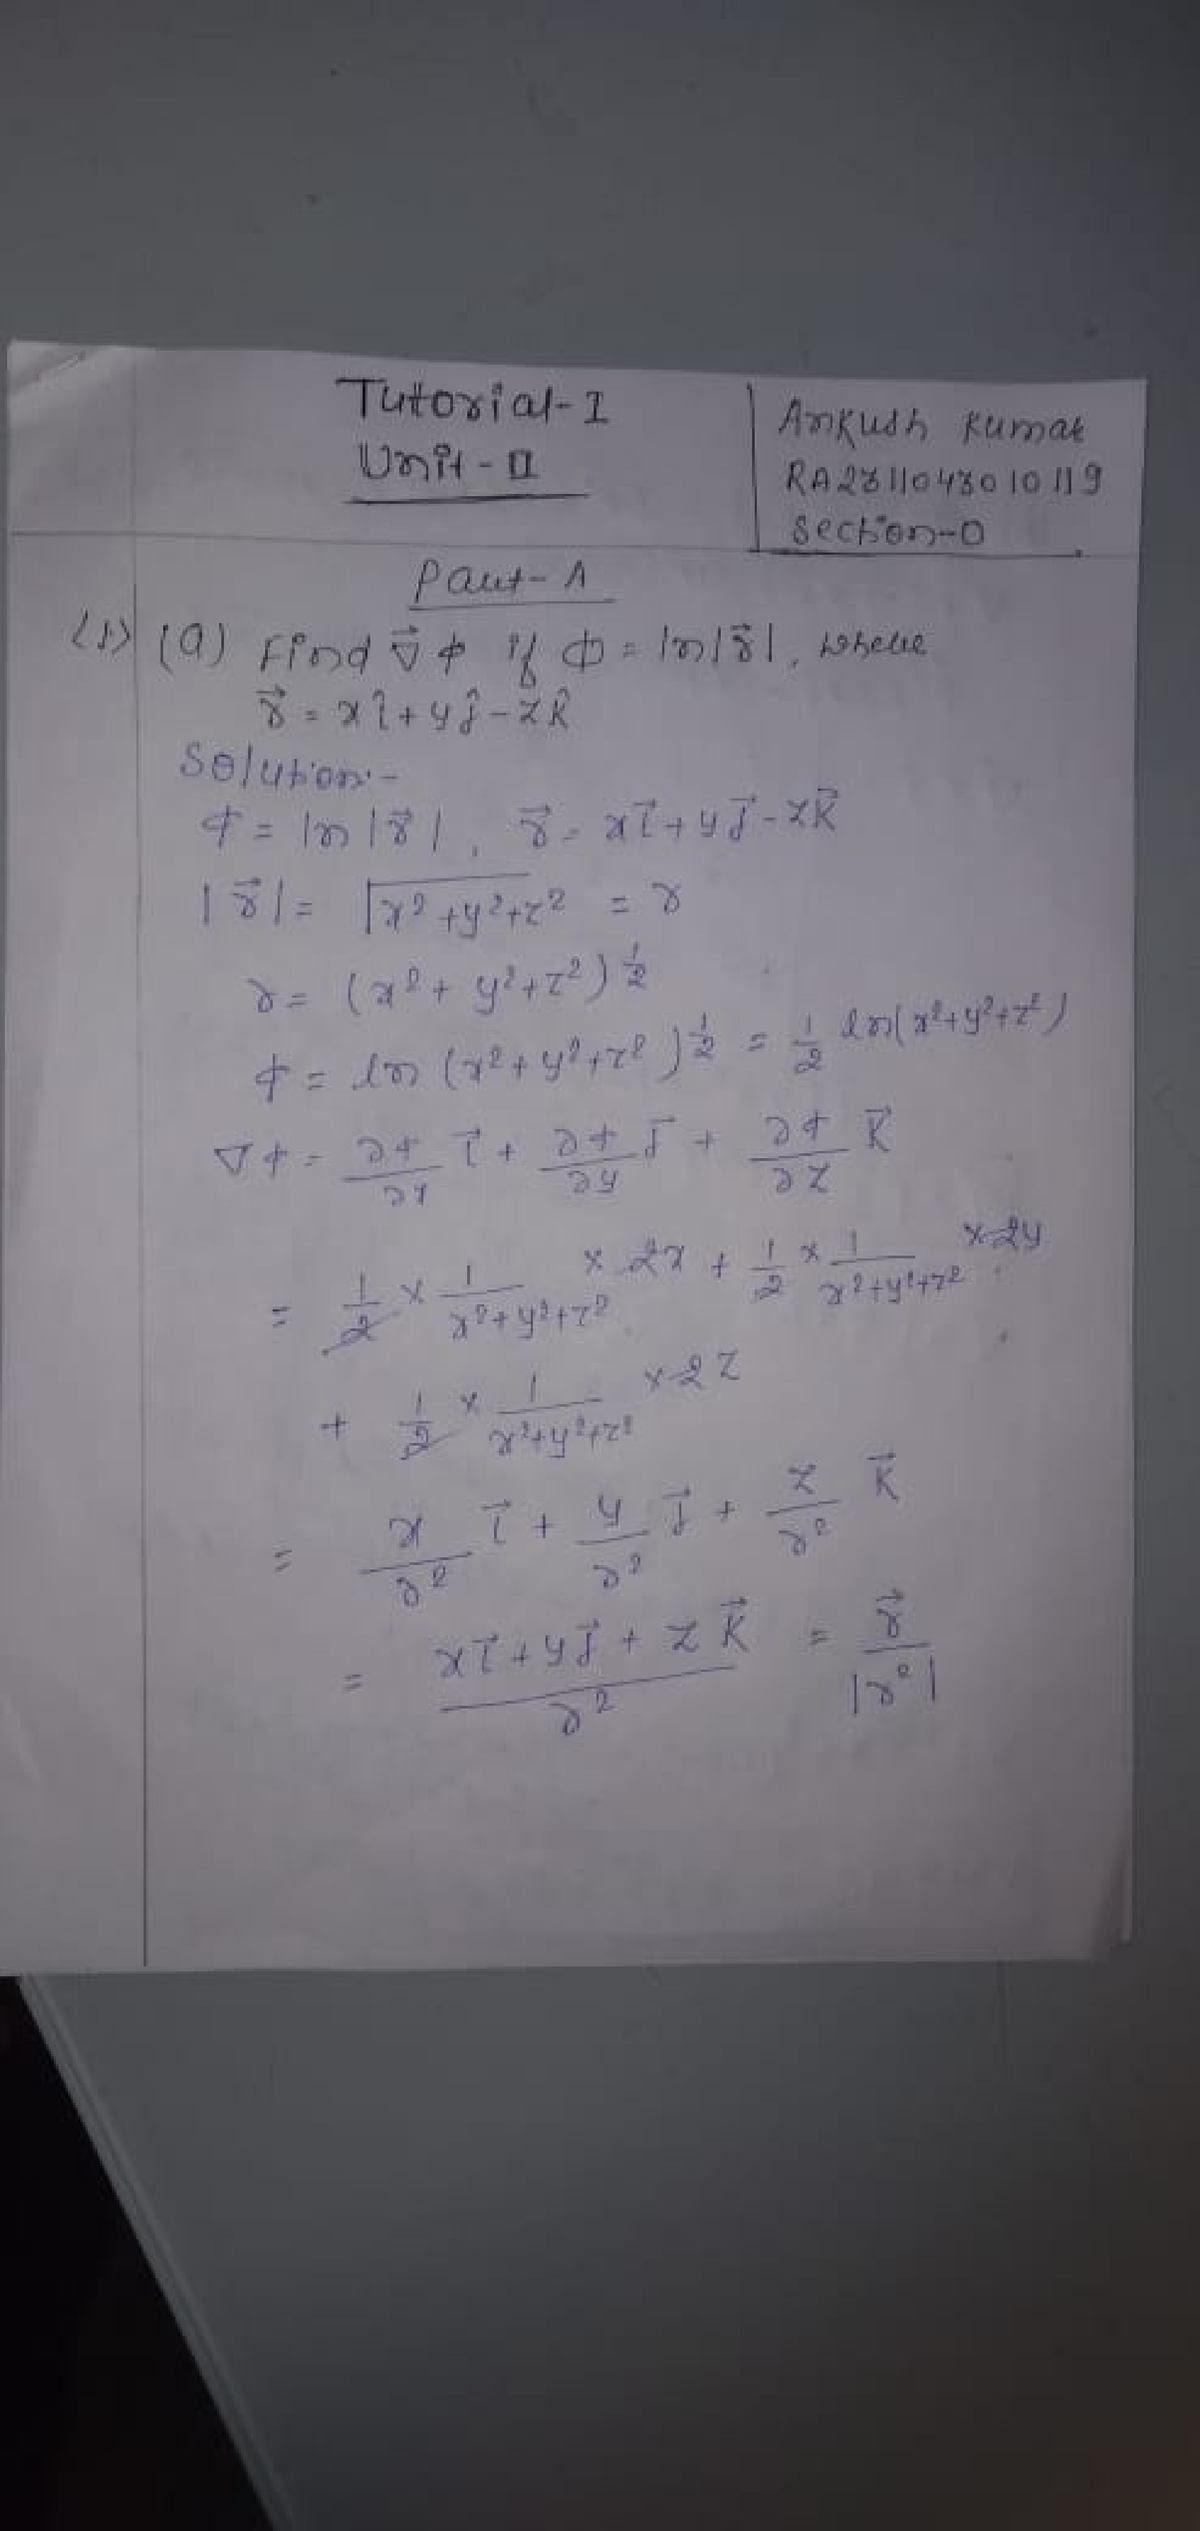 Tutorial-I
Unit-II
Ankush Kumar
RA2311043010119
Section-O
Part-A
(1) (a) Find ∇⃗ϕ if ϕ = ln|r⃗|, where
r⃗ = xî + yĵ - zk̂
Solution:-
ϕ = ln|r⃗|, r⃗ = xi⃗ + yj⃗ - zk⃗
|r⃗| = √x²+y²+z² = r
r = (x² + y² + z²)^1/2
ϕ = ln (x² + y² + z²)^1/2 = 1/2 ln(x²+y²+z²)
∇ϕ = ∂ϕ/∂x i⃗ + ∂ϕ/∂y j⃗ + ∂ϕ/∂z k⃗
= 1/2 × 1/x²+y²+z² × 2x + 1/2 × 1/x²+y²+z² × 2y
+ 1/2 × 1/x²+y²+z² × 2z
= x/r² i⃗ + y/r² j⃗ + z/r² k⃗
= xi⃗ + yj⃗ + zk⃗/r² = r⃗/|r²|